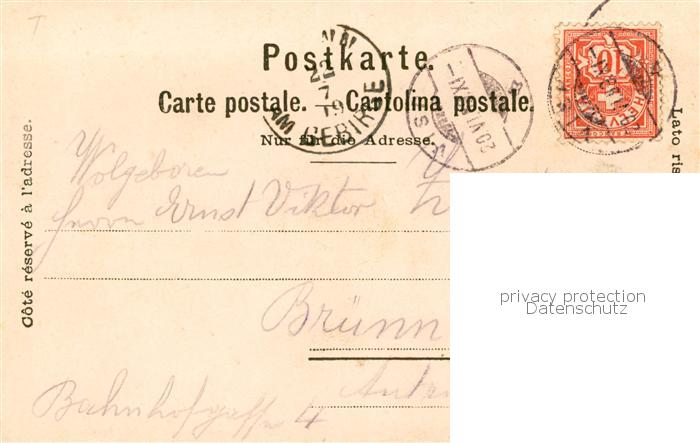 Postkarte.
Carte postale. — Cartolina postale.
Nur für die Adresse.
Côté réservé à l'adresse.
Lato ris
Wolgeboren
Herrn Ernst Viktor
Brünn
Bahnhofgasse 4
privacy protection
Datenschutz